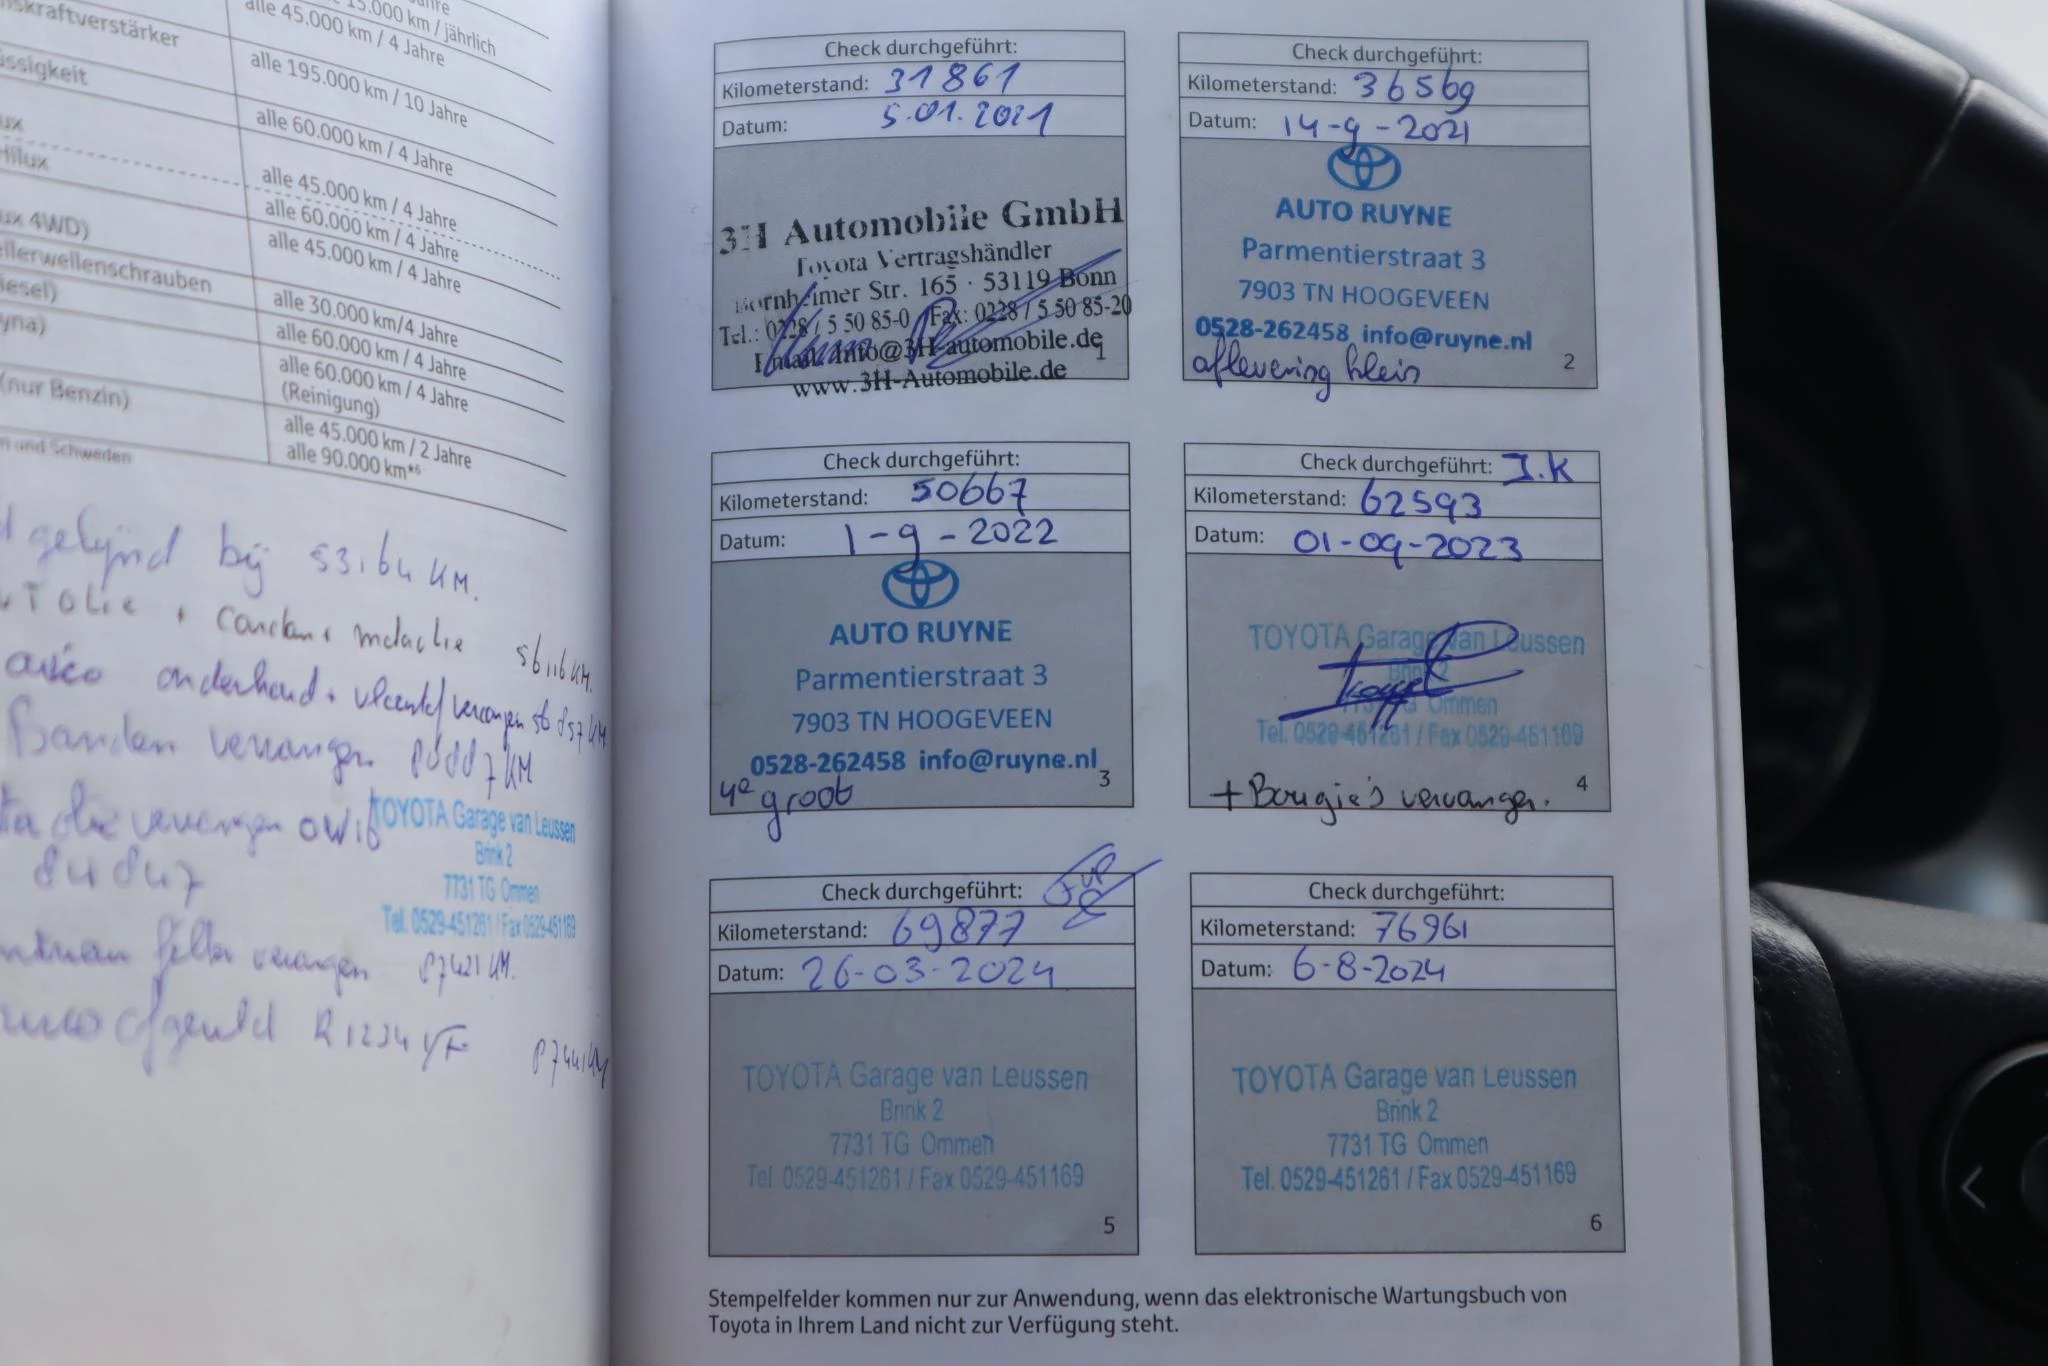 15.000 km / jährlich
alle 45.000 km / 4 Jahre
skraftverstärker
alle 195.000 km / 10 Jahre
ssigkeit
alle 60.000 km / 4 Jahre
ux
alle 45.000 km / 4 Jahre
Hilux
alle 60.000 km / 4 Jahre
ux 4WD)
alle 45.000 km / 4 Jahre
llerwellenschrauben
alle 30.000 km/4 Jahre
iesel)
alle 60.000 km / 4 Jahre
yna)
alle 60.000 km / 4 Jahre
(Reinigung)
(nur Benzin)
alle 45.000 km / 2 Jahre
alle 90.000 km*6
n und Schweden
bij 53164 KM.
olie + 56116 KM.
onderhoud + vervangen 56857 KM
Banden vervangen KM
olie vervangen OW16
84847
TOYOTA Garage van Leussen
Brink 2
7731 TG Ommen
Tel. 0529-451261 / Fax 0529-451169
filter vervangen 87421 KM.
R1234YF 87441 KM
Check durchgeführt:
Kilometerstand: 31861
Datum: 5.01.2021
3H Automobile GmbH
Toyota Vertragshändler
Bornheimer Str. 165 · 53119 Bonn
Tel.: 0228 / 5 50 85-0 Fax: 0228 / 5 50 85-20
Email: info@3H-automobile.de
1
www.3H-Automobile.de
Check durchgeführt:
Kilometerstand: 36569
Datum: 14-9-2021
AUTO RUYNE
Parmentierstraat 3
7903 TN HOOGEVEEN
0528-262458 info@ruyne.nl
aflevering klein
2
Check durchgeführt:
Kilometerstand: 50667
Datum: 1-9-2022
AUTO RUYNE
Parmentierstraat 3
7903 TN HOOGEVEEN
0528-262458 info@ruyne.nl
3
groot
Check durchgeführt: J.K
Kilometerstand: 62593
Datum: 01-09-2023
TOYOTA Garage van Leussen
Brink 2
7731 TG Ommen
Tel. 0529-451261 / Fax 0529-451169
+ Bougie's vervangen.
4
Check durchgeführt:
Kilometerstand: 69877
Datum: 26-03-2024
TOYOTA Garage van Leussen
Brink 2
7731 TG Ommen
Tel. 0529-451261 / Fax 0529-451169
5
Check durchgeführt:
Kilometerstand: 76961
Datum: 6-8-2024
TOYOTA Garage van Leussen
Brink 2
7731 TG Ommen
Tel. 0529-451261 / Fax 0529-451169
6
Stempelfelder kommen nur zur Anwendung, wenn das elektronische Wartungsbuch von
Toyota in Ihrem Land nicht zur Verfügung steht.